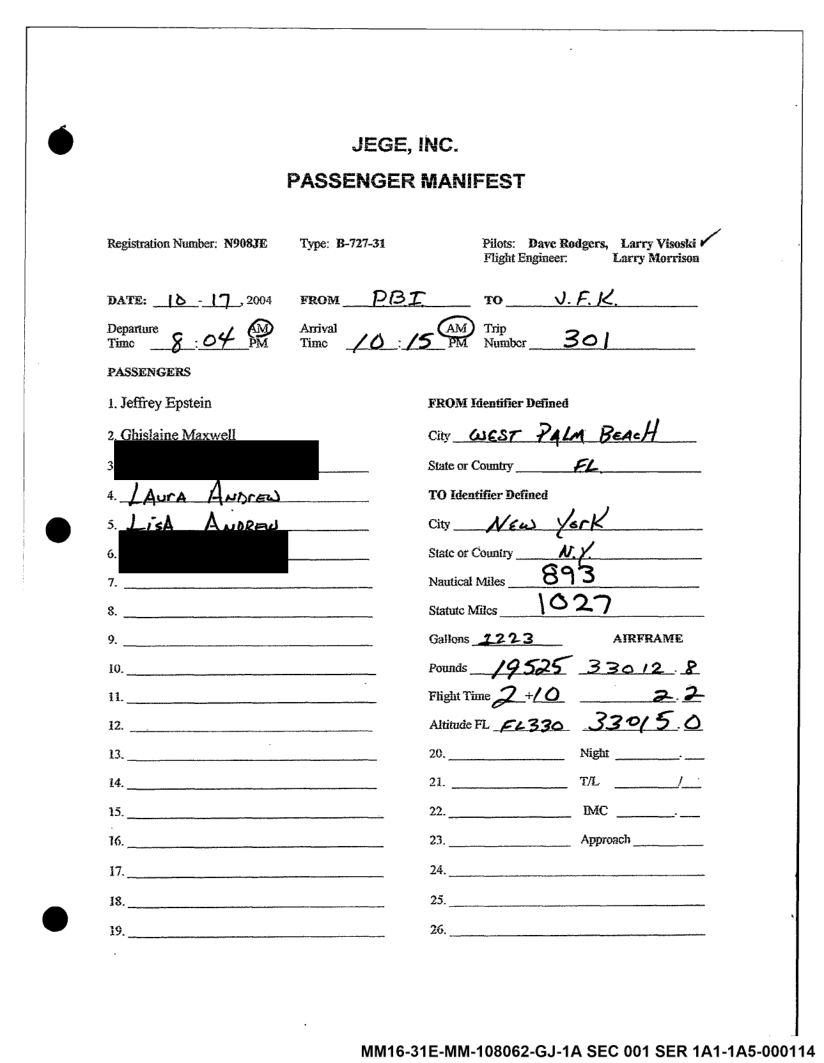 JEGE, INC.
PASSENGER MANIFEST
Registration Number: N908JE Type: B-727-31 Pilots: Dave Rodgers, Larry Visoski ✓
Flight Engineer: Larry Morrison
DATE: 10 - 17, 2004 FROM PBI TO J.F.K.
Departure Time 8:04 AM PM Arrival Time 10:15 AM PM Trip Number 301
PASSENGERS
1. Jeffrey Epstein FROM Identifier Defined
2. Ghislaine Maxwell City WEST PALM BEACH
3 State or Country FL
4. LAURA ANDREW TO Identifier Defined
5. LISA ANDREW City New York
6. State or Country N.Y.
7. Nautical Miles 893
8. Statute Miles 1027
9. Gallons 2223 AIRFRAME
10. Pounds 19525 33012.8
11. Flight Time 2+10 2.2
12. Altitude FL FL330 33015.0
13. 20. Night .
14. 21. T/L /
15. 22. IMC .
16. 23. Approach
17. 24.
18. 25.
19. 26.
MM16-31E-MM-108062-GJ-1A SEC 001 SER 1A1-1A5-000114